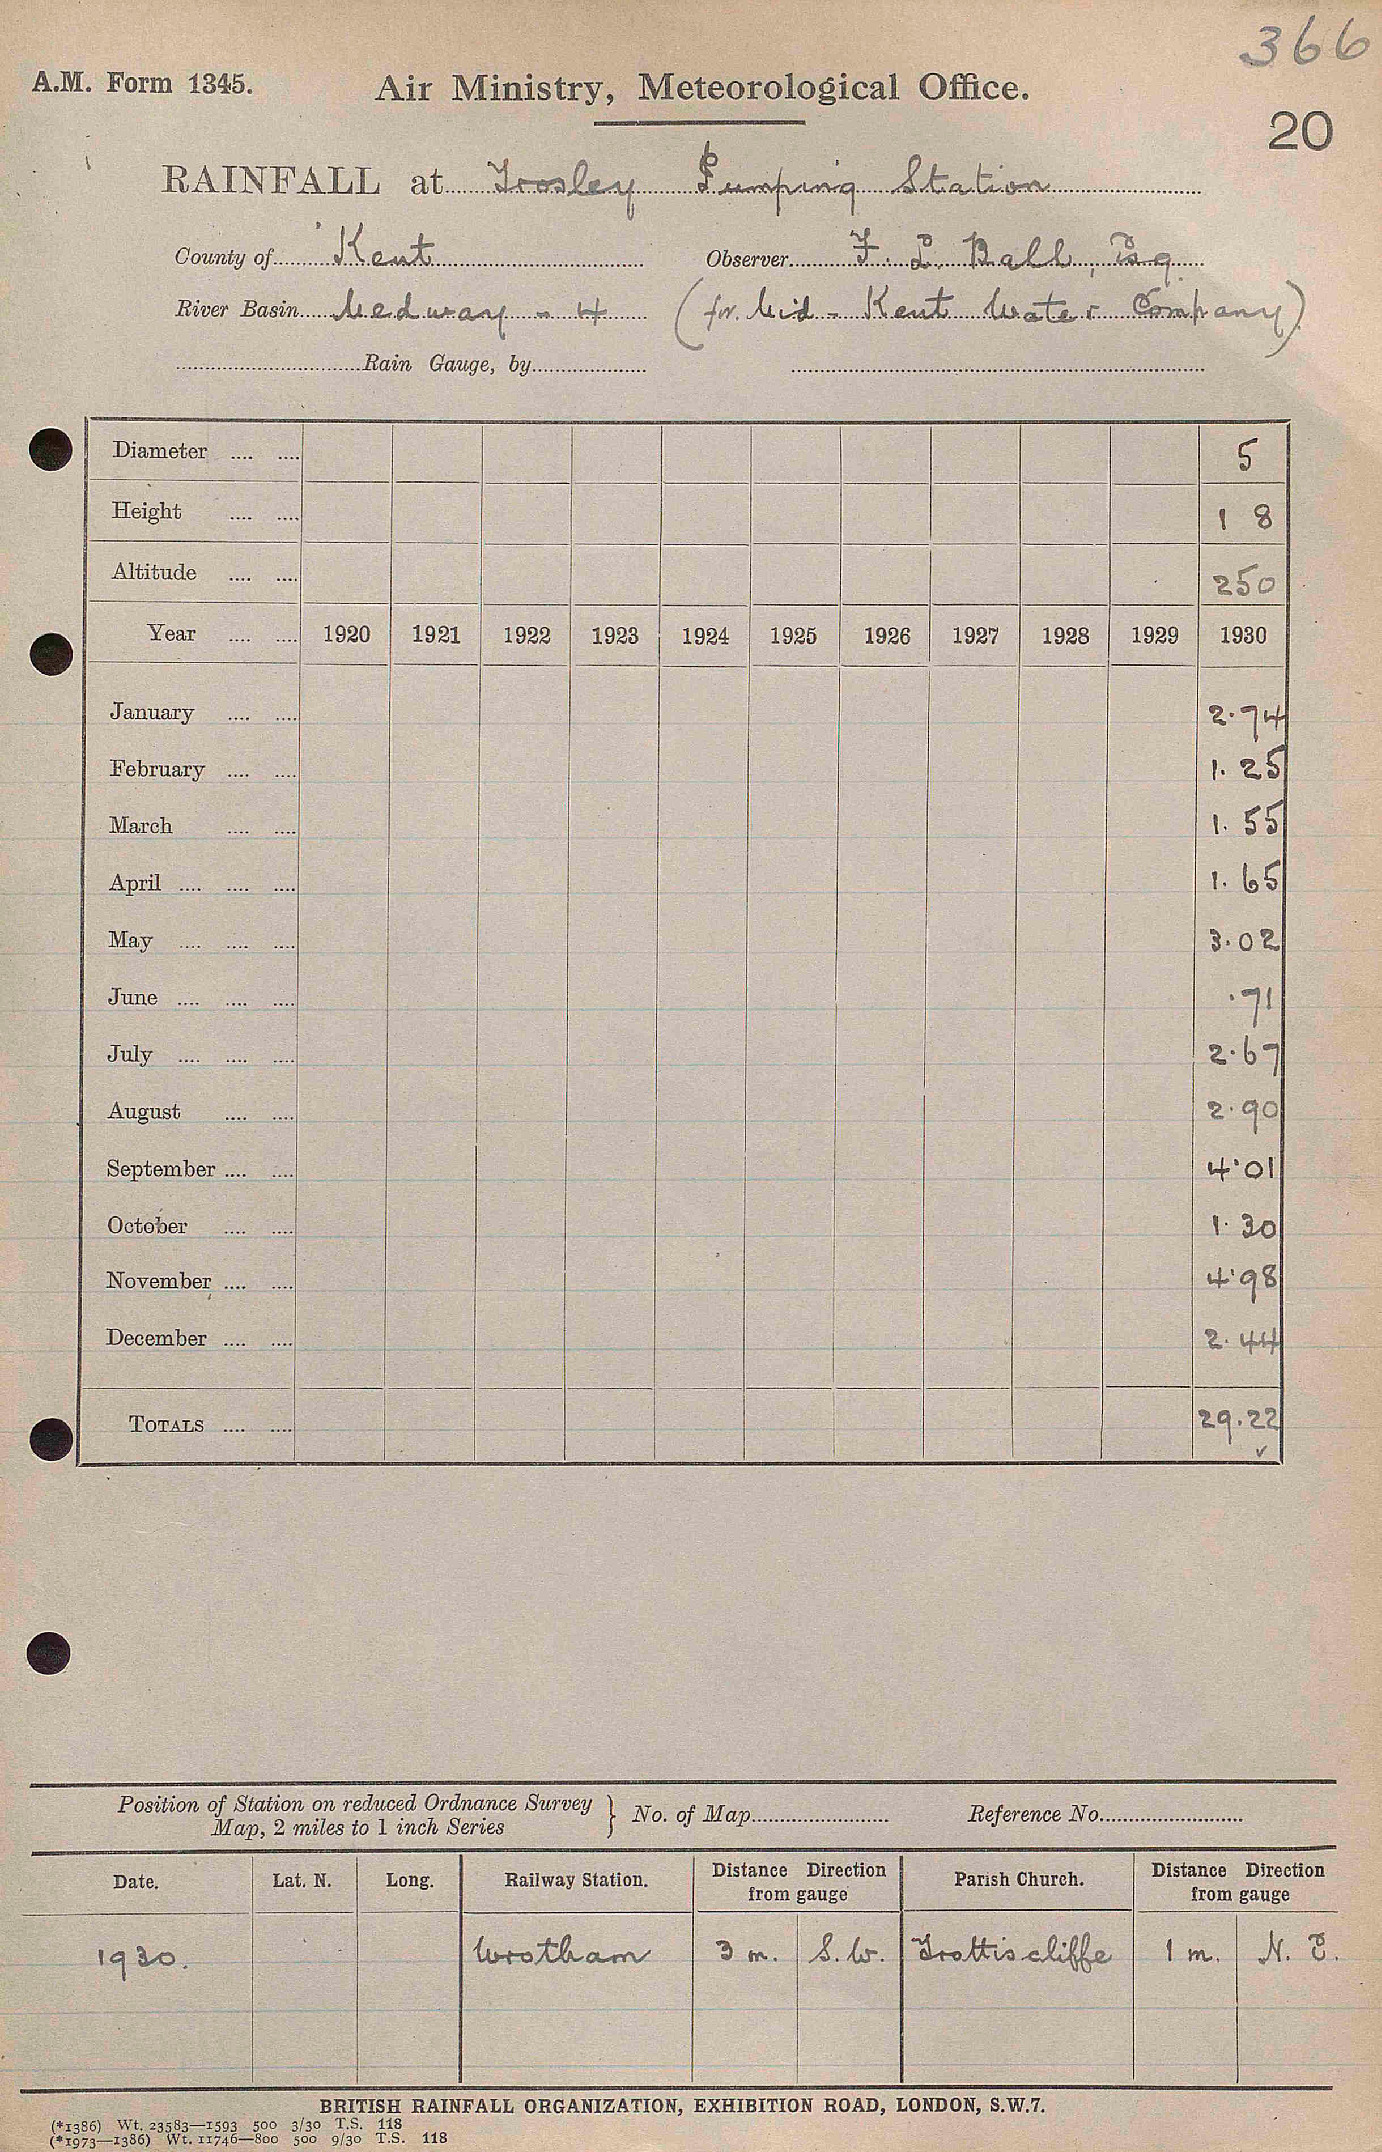 366
A.M. Form 1345. Air Ministry, Meteorological Office.
20
RAINFALL at Trosley Pumping Station
County of Kent Observer F. L. Ball, Esq
River Basin Medway - 4 (for Mid - Kent Water Company)
Rain Gauge, by
Diameter .... .... 5
Height .... .... 1 8
Altitude .... .... 250
Year .... .... 1920 1921 1922 1923 1924 1925 1926 1927 1928 1929 1930
January .... .... 2.74
February .... .... 1.25
March .... .... 1.55
April .... .... .... 1.65
May .... .... .... 3.02
June .... .... .... .71
July .... .... .... 2.67
August .... .... 2.90
September .... .... 4.01
October .... .... 1.30
November .... .... 4.98
December .... .... 2.44
TOTALS .... .... 29.22
✓
Position of Station on reduced Ordnance Survey
Map, 2 miles to 1 inch Series } No. of Map Reference No.
Date. Lat. N. Long. Railway Station. Distance Direction from gauge Parish Church. Distance Direction from gauge
1930. Wrotham 3 m. S.W. Trottiscliffe 1 m. N. E.
BRITISH RAINFALL ORGANIZATION, EXHIBITION ROAD, LONDON, S.W.7.
(*1386) Wt. 23583—1593 500 3/30 T.S. 118
(*1973—1386) Wt. 11746—800 500 9/30 T.S. 118